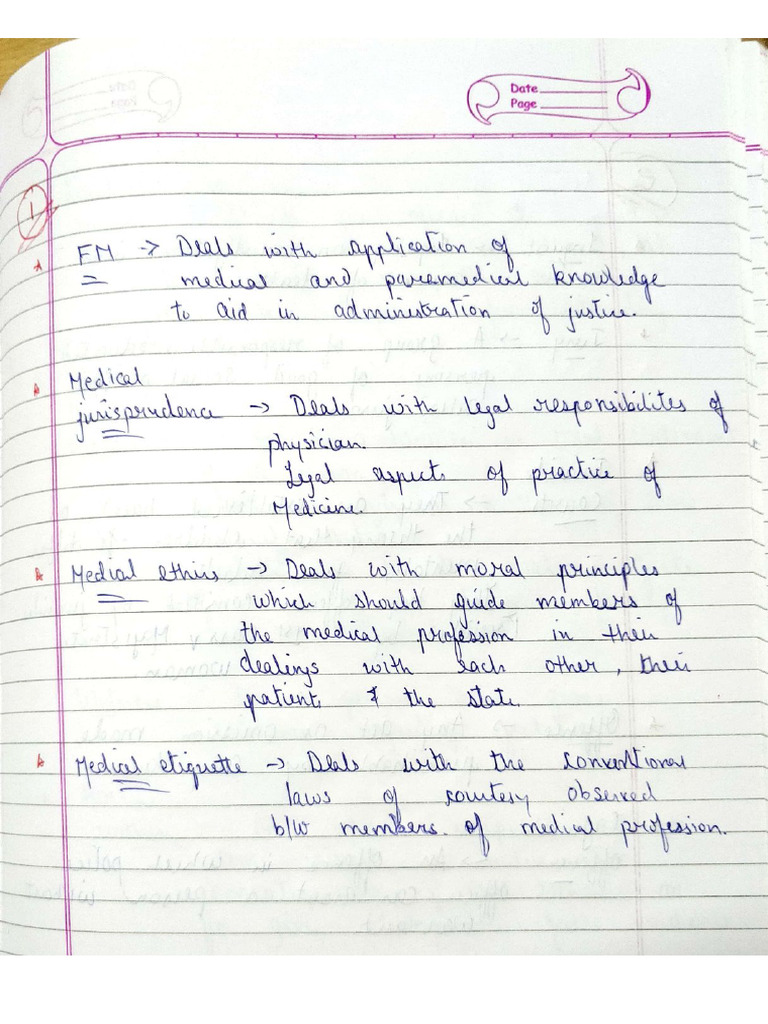 Date
Page
1
FM -> Deals with application of
medical and paramedical knowledge
to aid in administration of justice.
Medical
jurisprudence -> Deals with legal responsibilites of
physician.
Legal aspects of practice of
Medicine.
Medical ethics -> Deals with moral principles
which should guide members of
the medical profession in their
dealings with each other, their
patient & the state.
Medical etiquette -> Deals with the conventional
laws of courtesy observed
b/w members of medical profession.